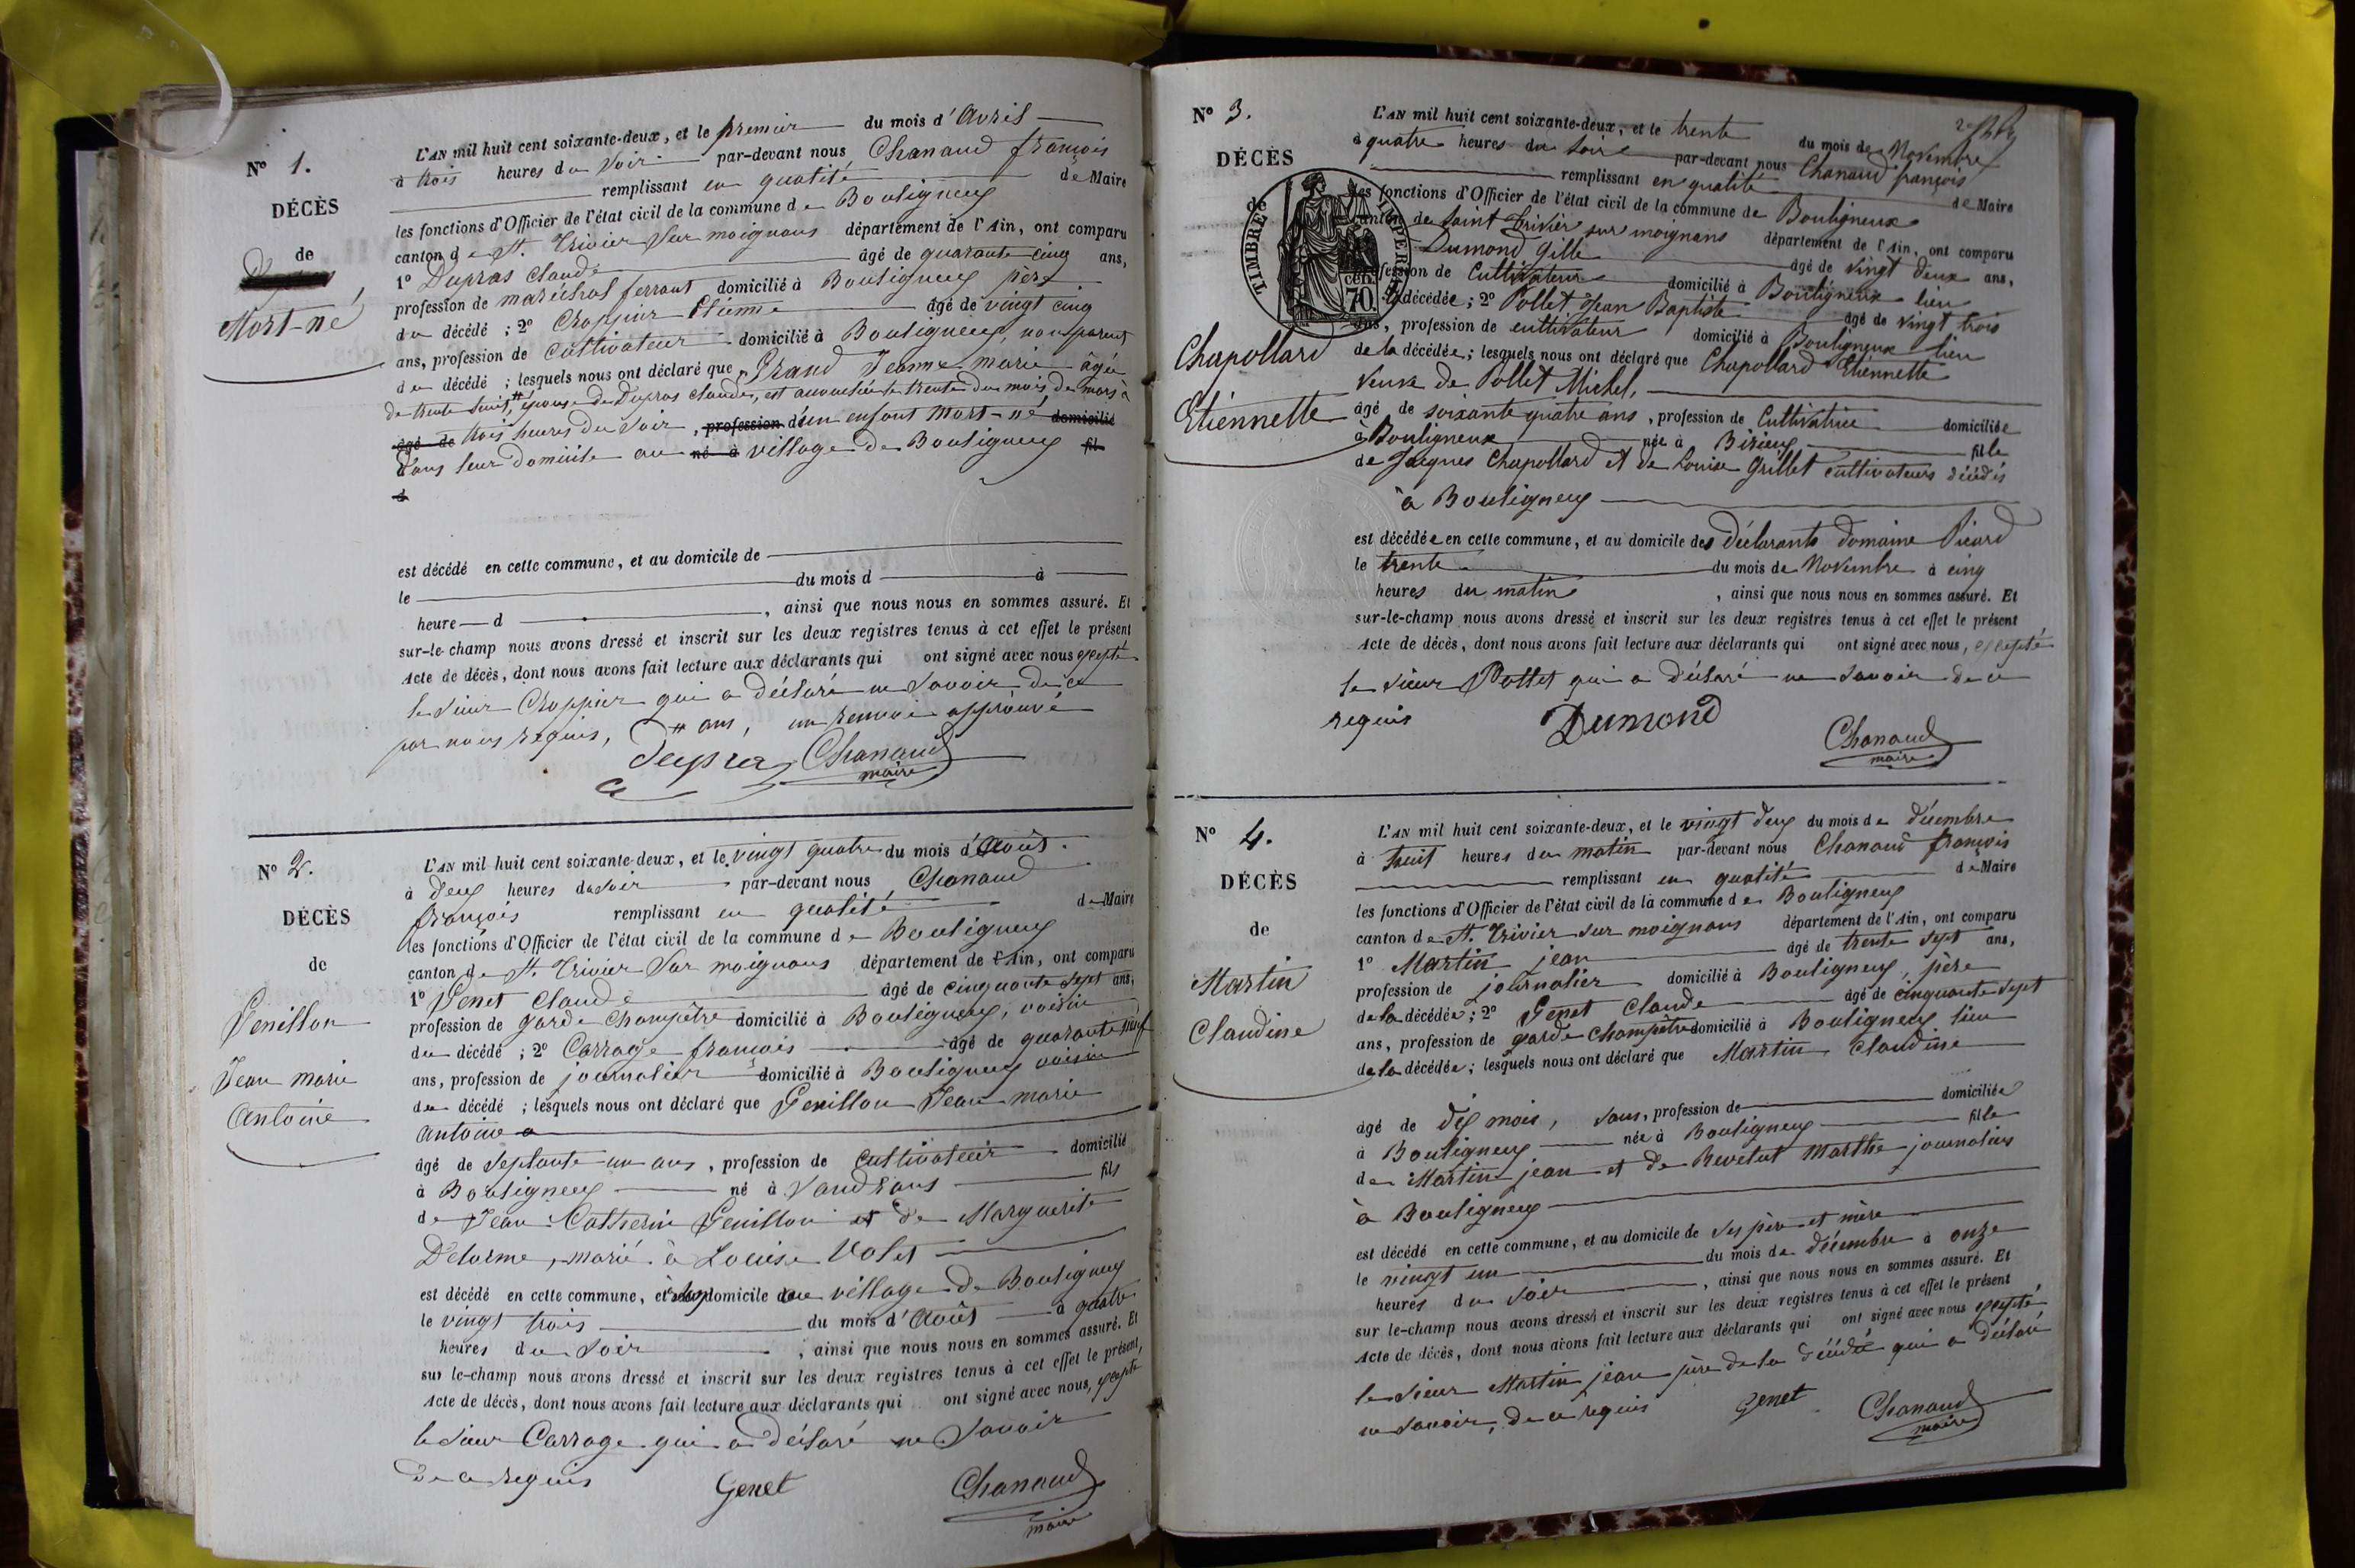 N° 1.
DÉCÈS
de
Mort-né
L'AN mil huit cent soixante-deux, et le premier du mois d'Avril
à trois heures du Soir par-devant nous Chanaud françois
remplissant en qualité de Maire
les fonctions d'Officier de l'état civil de la commune de Bouligneux
canton de St. Trivier Sur moignans département de l'Ain, ont comparu
1° Dupras Claude âgé de quarante cinq ans,
profession de maréchal ferrant domicilié à Bouligneux père
du décédé ; 2° Choppier Etienne âgé de vingt cinq
ans, profession de Cultivateur domicilié à Bouligneux, non parent
du décédé ; lesquels nous ont déclaré que Grand Jeanne marie âgée
de trente huit, # épouse de Dupras Claude, est accouchée le trente du mois de mars à
âgé de trois heures du Soir, profession d'un enfant Mort-né domicilié
dans leur domicile au né à village de Bouligneux fils
d
est décédé en cette commune, et au domicile de
le du mois d à
heure d , ainsi que nous nous en sommes assuré. Et
sur-le-champ nous avons dressé et inscrit sur les deux registres tenus à cet effet le présent
Acte de décès, dont nous avons fait lecture aux déclarants qui ont signé avec nous excepté
le Sieur Choppier qui a déclaré ne Savoir de ce
par nous requis, # ans, un renvoi approuvé
Dupras Chanaud
maire
N° 2.
DÉCÈS
de
Genillon
Jean marie
Antoine
L'AN mil huit cent soixante-deux, et le vingt quatre du mois d'Août.
à deux heures du Soir par-devant nous Chanaud
françois remplissant en qualité de Maire
les fonctions d'Officier de l'état civil de la commune de Bouligneux
canton de St. Trivier Sur moignans département de l'Ain, ont comparu
1° Genet Claude âgé de cinquante Sept ans,
profession de garde champêtre domicilié à Bouligneux, voisin
du décédé ; 2° Carrage françois âgé de quarante neuf
ans, profession de journalier domicilié à Bouligneux voisin
du décédé ; lesquels nous ont déclaré que Genillon Jean marie
Antoine
âgé de Septante-un ans, profession de Cultivateur domicilié
à Bouligneux né à Vandrans fils
de Jean Catherin Genillon et de Marguerite
Delorme, marié à Louise Volet
est décédé en cette commune, et domicile au village de Bouligneux
le vingt trois du mois d'Août à quatre
heures du Soir , ainsi que nous nous en sommes assuré. Et
sur le-champ nous avons dressé et inscrit sur les deux registres tenus à cet effet le présent,
Acte de décès, dont nous avons fait lecture aux déclarants qui ont signé avec nous, excepté
le Sieur Carrage qui a déclaré ne Savoir
de ce requis
Genet Chanaud
maire
N° 3.
DÉCÈS
de
TIMBRE IMPERIAL
70 cen.
Chapollard
Etiennette
L'AN mil huit cent soixante-deux, et le trente du mois de Novembre
à quatre heures du soir par-devant nous Chanaud françois
remplissant en qualité de Maire
les fonctions d'Officier de l'état civil de la commune de Bouligneux
canton de Saint Trivier sur moignans département de l'Ain, ont comparu
Dumond Gille âgé de vingt deux ans,
profession de Cultivateur domicilié à Bouligneux lieu
décédée ; 2° Pollet Jean Baptiste âgé de vingt trois
ans, profession de cultivateur domicilié à Bouligneux lieu
de la décédée ; lesquels nous ont déclaré que Chapollard Etiennette
veuve de Pollet Michel,
âgé de soixante quatre ans, profession de Cultivatrice domiciliée
à Bouligneux née à Birieux fille
de Jacques Chapollard et de Louise Grillet cultivateurs décédés
à Bouligneux
est décédée en cette commune, et au domicile des déclarants domaine Picard
le trente du mois de Novembre à cinq
heures du matin , ainsi que nous nous en sommes assuré. Et
sur-le-champ nous avons dressé et inscrit sur les deux registres tenus à cet effet le présent
Acte de décès, dont nous avons fait lecture aux déclarants qui ont signé avec nous, excepté
le Sieur Pollet qui a déclaré ne Savoir de ce
requis
Dumond Chanaud
maire
N° 4.
DÉCÈS
de
Martin
Claudine
L'AN mil huit cent soixante-deux, et le vingt deux du mois de décembre
à huit heures du matin par-devant nous Chanaud françois
remplissant en qualité de Maire
les fonctions d'Officier de l'état civil de la commune de Bouligneux
canton de St. Trivier sur moignans département de l'Ain, ont comparu
1° Martin jean âgé de trente sept ans,
profession de journalier domicilié à Bouligneux, père
de la décédée ; 2° Genet Claude âgé de cinquante Sept
ans, profession de garde champêtre domicilié à Bouligneux lieu
de la décédée ; lesquels nous ont déclaré que Martin Claudine
âgé de dix mois, sans, profession de domiciliée
à Bouligneux née à Bouligneux fille
de Martin jean et de Revelut Marthe journaliers
à Bouligneux
est décédé en cette commune, et au domicile de ses père et mère
le vingt un du mois de décembre à onze
heures du Soir , ainsi que nous nous en sommes assuré. Et
sur le-champ nous avons dressé et inscrit sur les deux registres tenus à cet effet le présent
Acte de décès, dont nous avons fait lecture aux déclarants qui ont signé avec nous excepté
le Sieur Martin jean père de la décédée qui a déclaré
ne Savoir, de ce requis
Genet Chanaud
maire